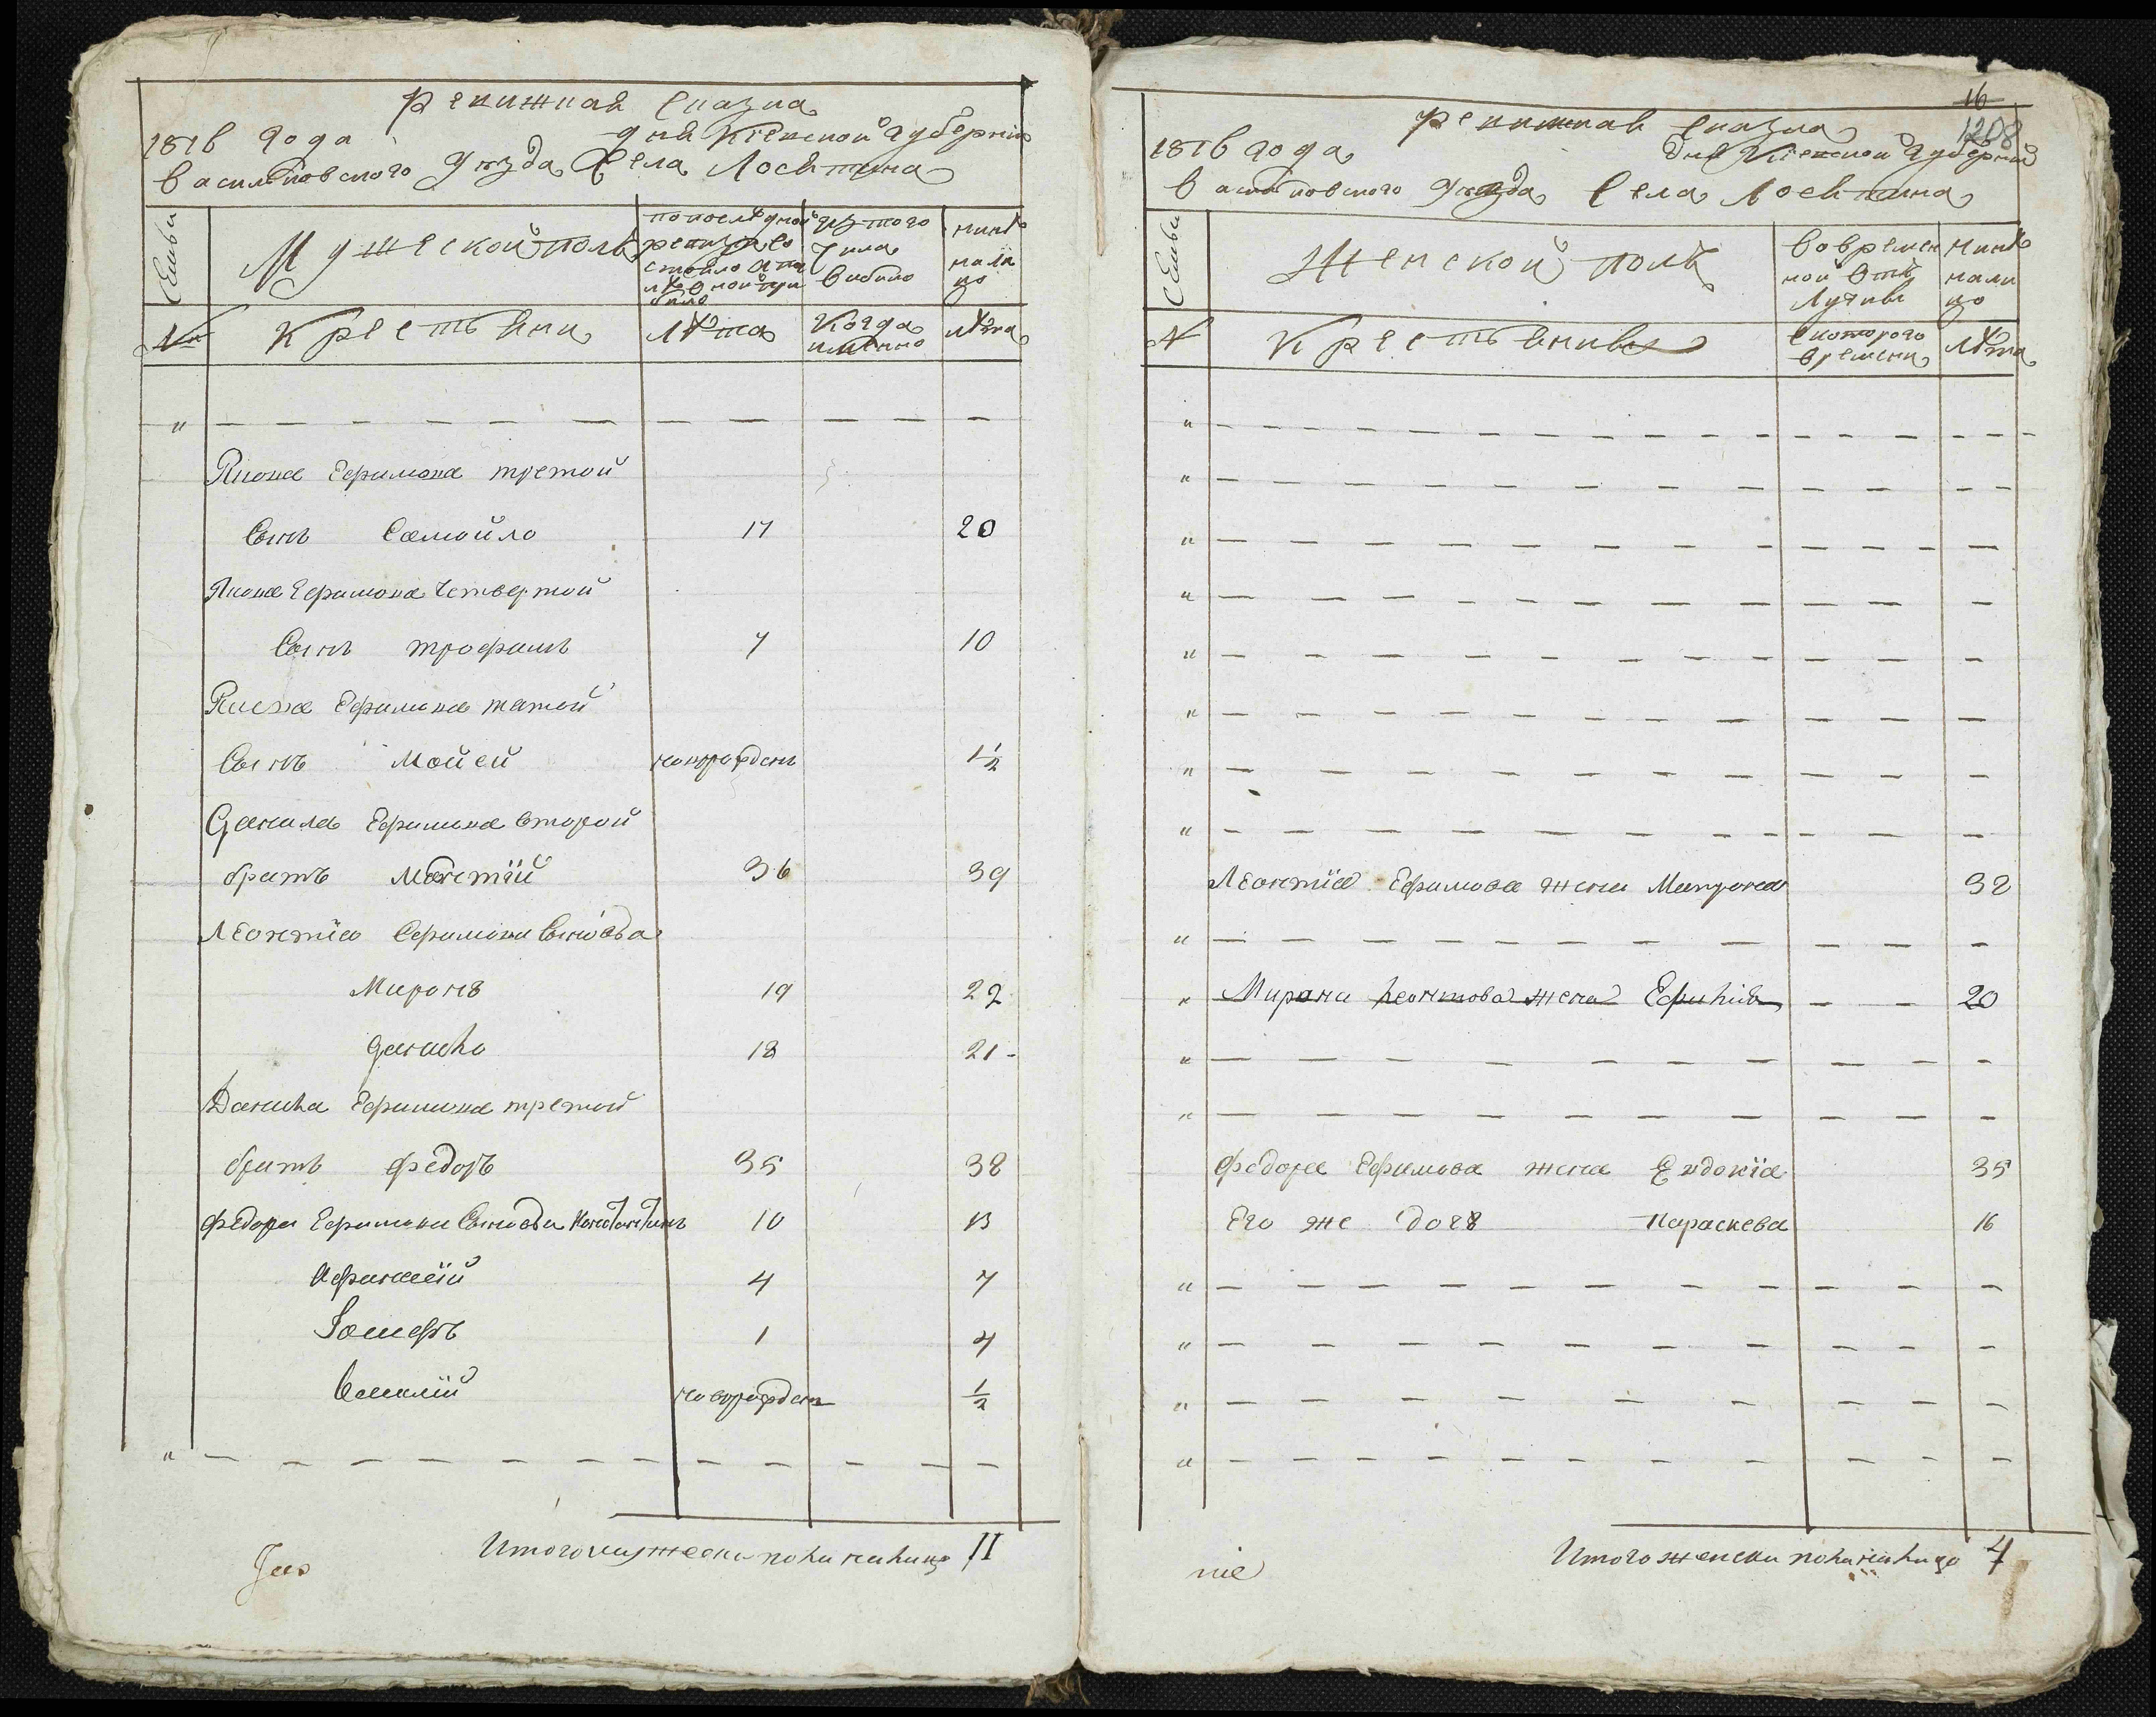 Ревижная сказка
1816 года дня Киевской губернии
васильковского уезда Села Лосятина
Семьи
Мужеской полъ
попоследной ревизии со стояло и после оной при было
изъ того числа выбыло
ныне нали цо
№
Крестьяни
лѣта
Когда именно
лѣта
" — — — —
Якова Ефимова третой
Сынъ Самойло 17 20
Якова Ефимова Четвертой
Сынъ трофимъ 7 10
Якова Ефимова пятой
Сынъ Мойсей новорожденъ 1½
Данила Ефимова второй
братъ Леонтій 36 39
Леонтія Ефимова Сыновья
Миронъ 19 22
Данило 18 21 -
Данила Ефимова третой
братъ федоръ 35 38
федора Ефимова Сыновья Константинъ 10 13
Афанасій 4 7
1 4
Василій новорожден ½
" — — — —
Итого мужеска пола налицо 11
Jus
16
1208
Ревижная сказка
1816 года дня Киевской губерній
васильковского уезда Села Лосятина
Семьи
Женской полъ
во времен ной отъ лучки
ныне нали цо
№
Крестьянивы
с которого времени
лѣта
" — — — —
" — — — —
" — — — —
" — — — —
" — — — —
" — — — —
" — — — —
" — — — —
Леонтія Ефимова жена Матрона 38
" — — — —
" Мирона Леонтова жена Ефимія — — 20
" — — — —
" — — — —
федора Ефимова жена Евдокія 35
Его же дочь Параскева 16
" — — — —
" — — — —
" — — — —
" — — — —
Итого женска пола налицо 4
nie